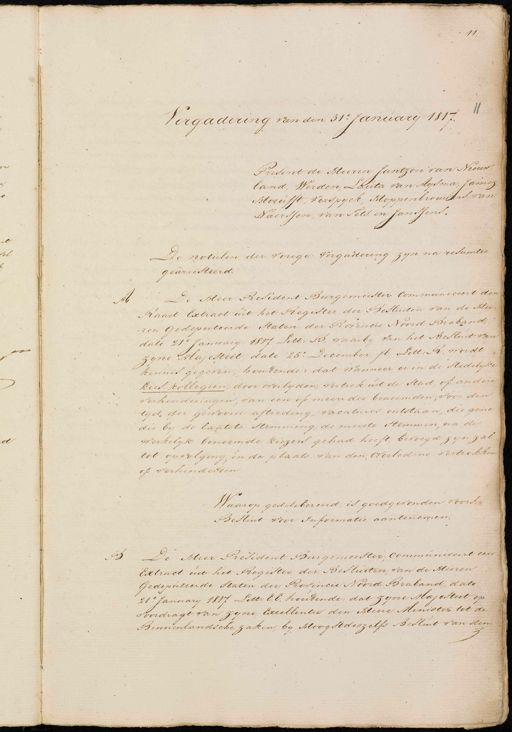 11
11
Vergadering van den 31e January 1817.
Present de Heeren Jantzon van Nieuw
land, Werden, Lauta van Aysma, Jan
Verspyck, van
van Pels en Janssens.
De notulen der vorige Vergadering zyn na resumtie
gearresteerd.
A De Heer President Burgemeester Communiceert den
Raad Extract uit het Register der Besluiten van de Hee
ren Gedeputeerde Staten der Provincie Noord Braband,
dato 21e January 1817 Lett. B waarby van het Besluit van
zyne Majesteit dato 25e December ll. Lett. A wordt
kennis gegeven, houdende dat wanneer er in de Stedelyke
Kies kollegien, door overlyden, vertrek uit de Stad, of andere
verhinderingen, van een of meer der benoemden, voor den
tyd der gewone aftreding, vacatures ontstaan, die gene
die by de laatste Stemming de meeste Stemmen na de
werkelyk benoemde kiezers gehad heeft bevoegd zyn zal
tot opvolging in de plaats van den Overledene vertrokken
of verhinderden
Waarop gedelibereerd, is goedgevonden voorsz.
Besluit voor Informatie aantenemen.
B De Heer President Burgemeester, Communiceert een
Extract uit het Register der Besluiten van de Heeren
Gedeputeerde Staten der Provincie Noord Braband, dato
21e January 1817 Lett. houdende dat zyne Majesteit op
voordragt van zyne Excellentie den Heere Minister tot de
Binnenlandsche zaken, by Hoogstdeszelfs Besluit van den